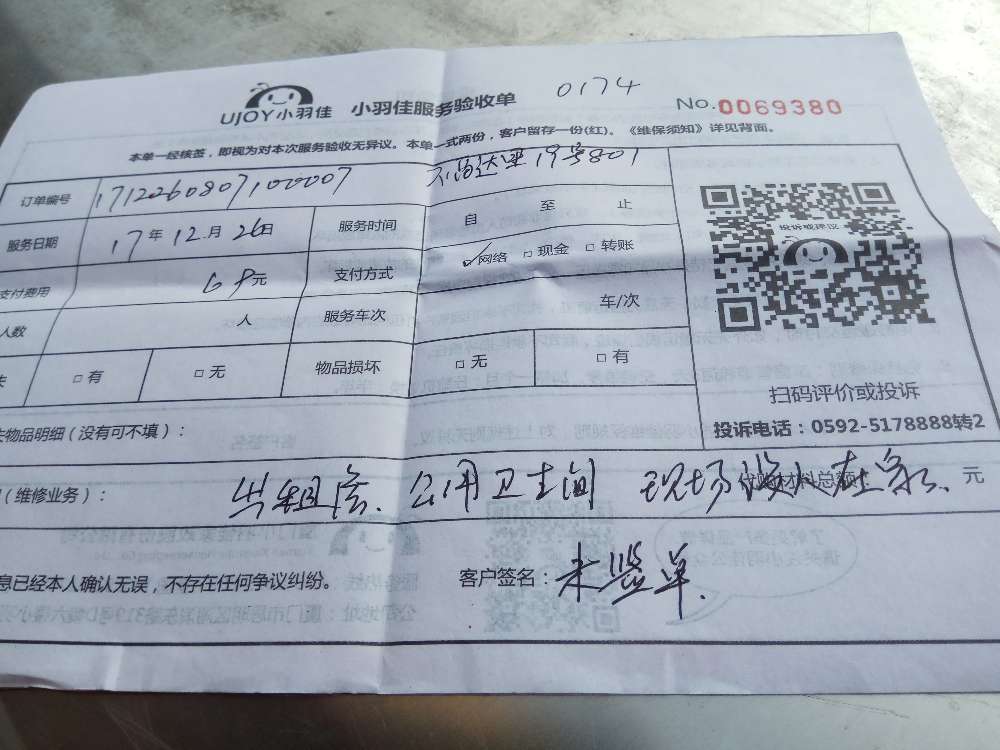 UJOY小羽佳 小羽佳服务验收单 0174 No.0069380
本单一经核签，即视为对本次服务验收无异议。本单一式两份，客户留存一份(红)。《维保须知》详见背面。
订单编号 1712260807100007 达里19号801
服务日期 17年12月26日 服务时间 自 至 止
支付费用 68元 支付方式 ☑网络 □现金 □转账
人数 人 服务车次 车/次
□有 □无 物品损坏 □无 □有
投诉或建议
扫码评价或投诉
物品明细（没有可不填）：
投诉电话：0592-5178888转2
（维修业务）： 出租房、公用卫生间 现场没人在家、 材料总额 元
息已经本人确认无误，不存在任何争议纠纷。 客户签名：未签单、